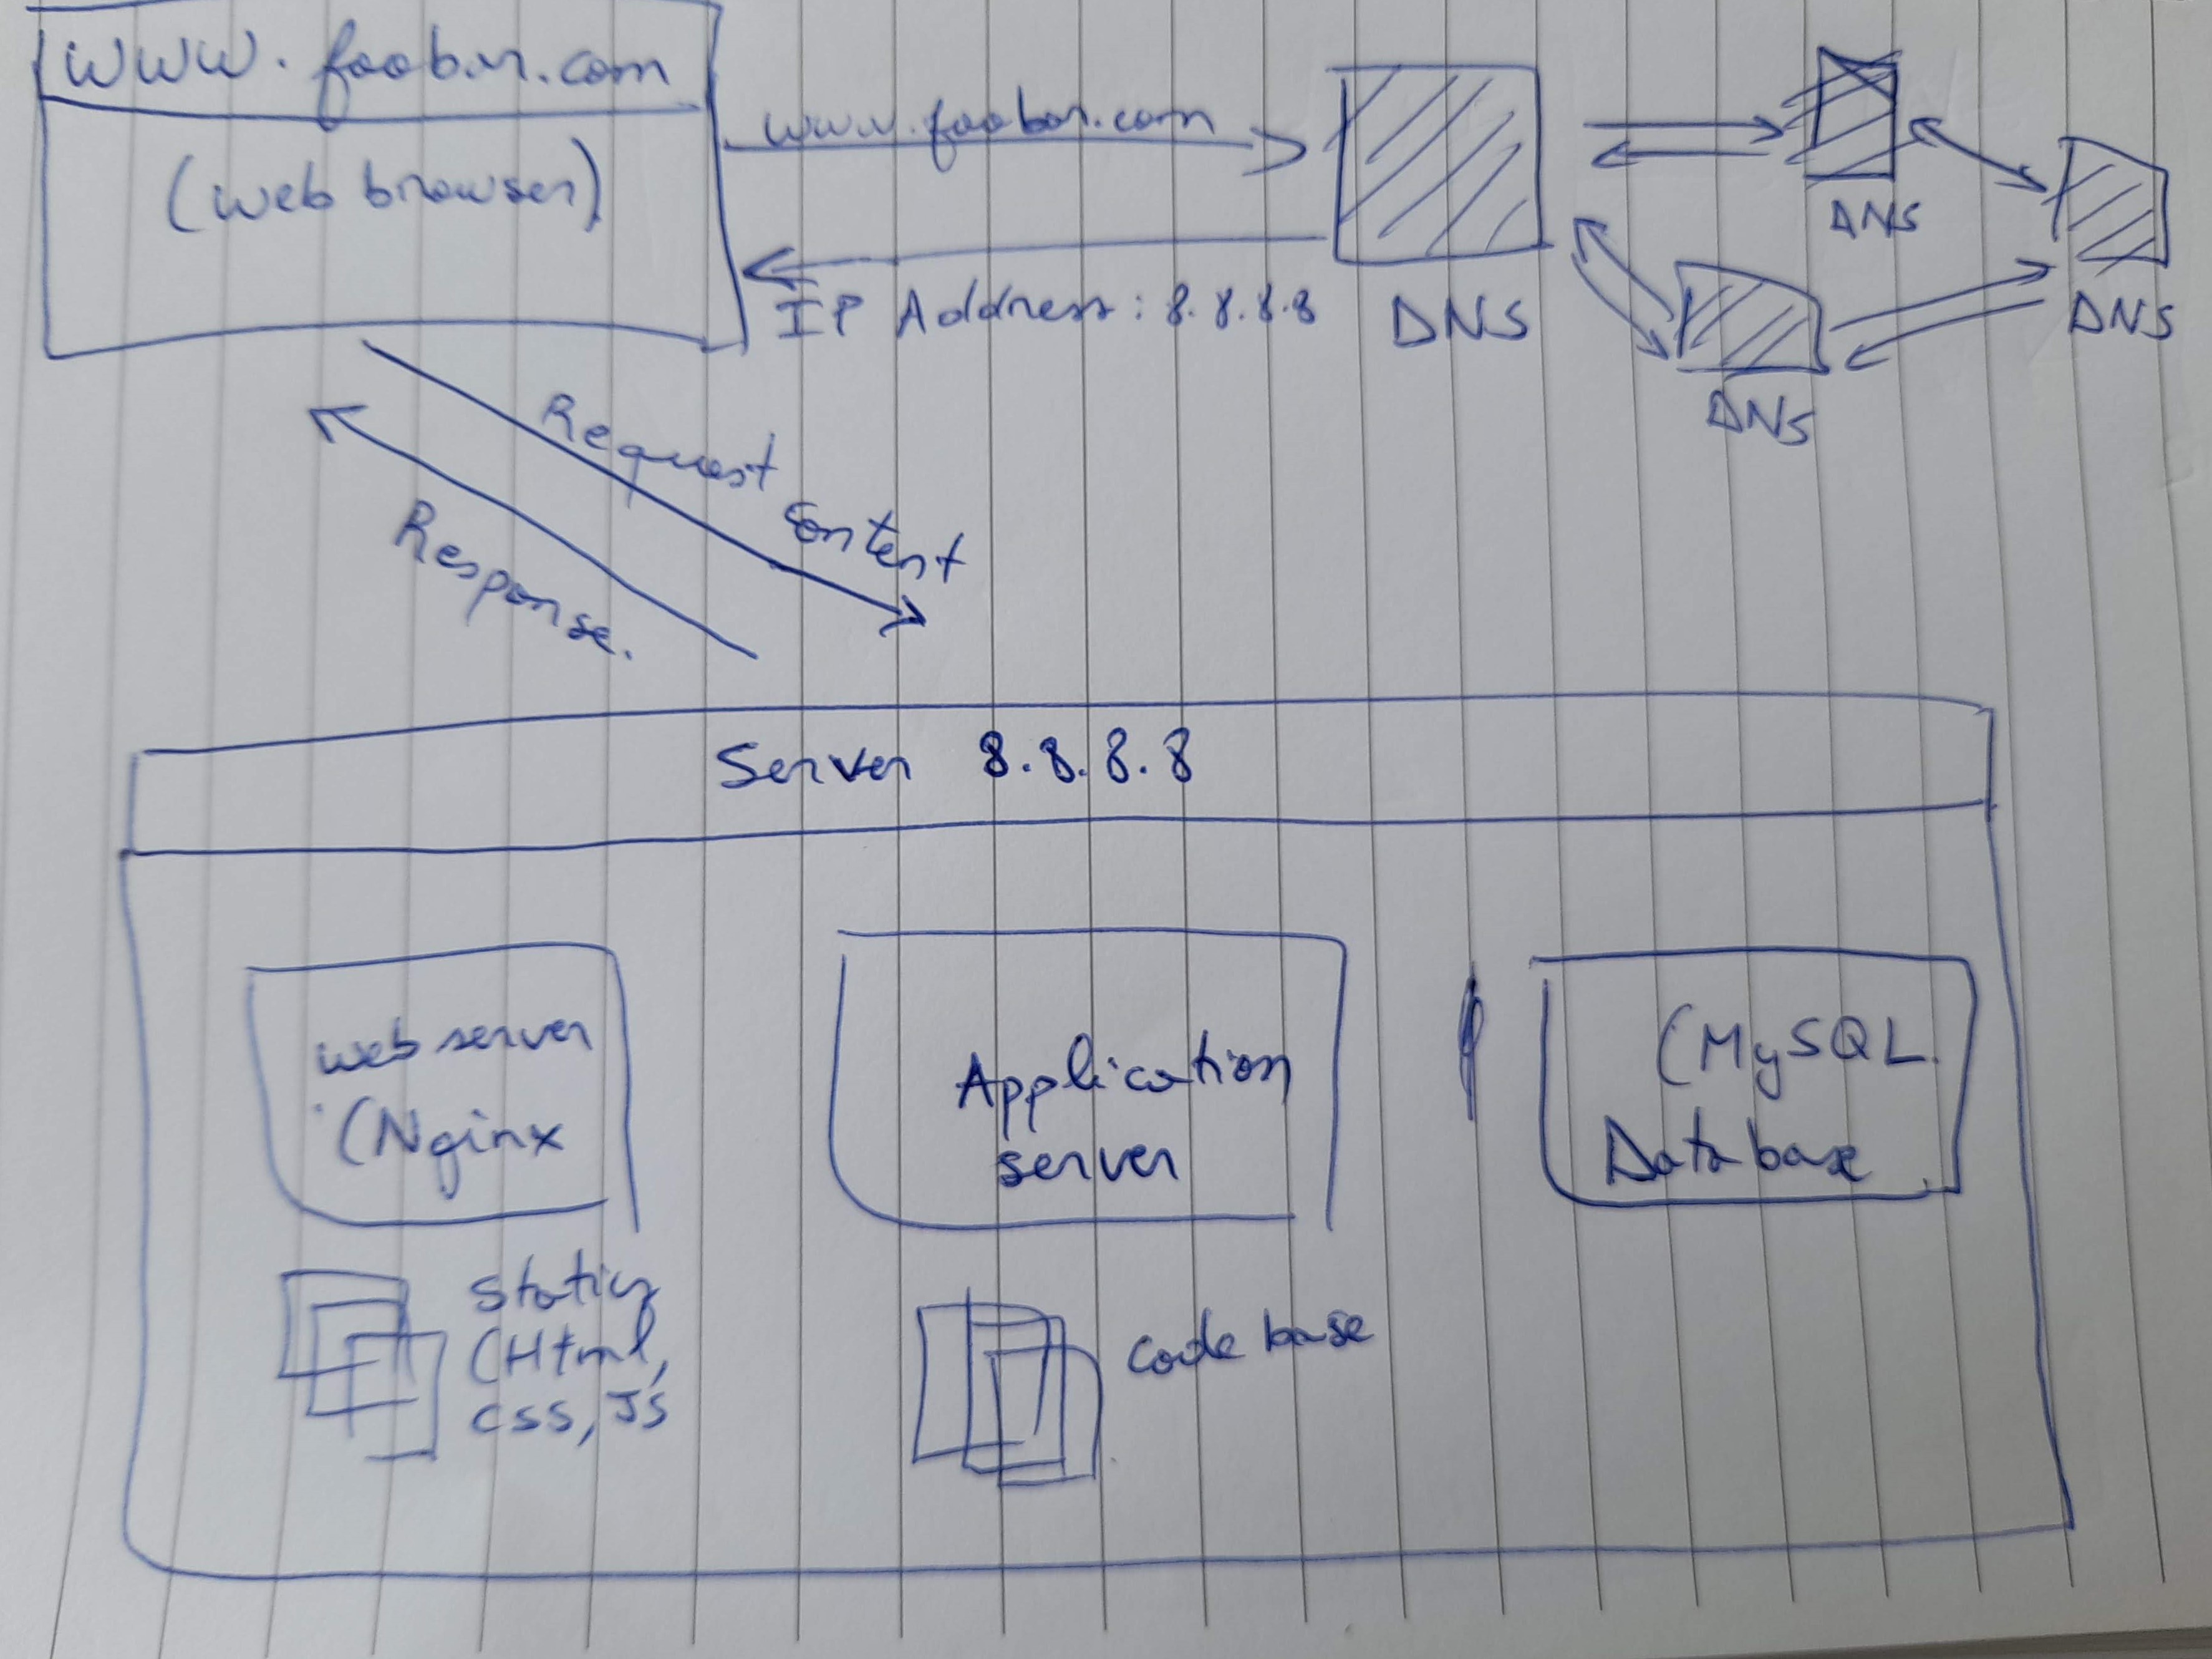 www.foobar.com
(web browser)
www.foobar.com
IP Address: 8.8.8.8
DNS
DNS
DNS
DNS
Request
content
Response.
Server 8.8.8.8
web server
(Nginx
Application
server
(MySQL.
Database
(Html,
css, JS
code base